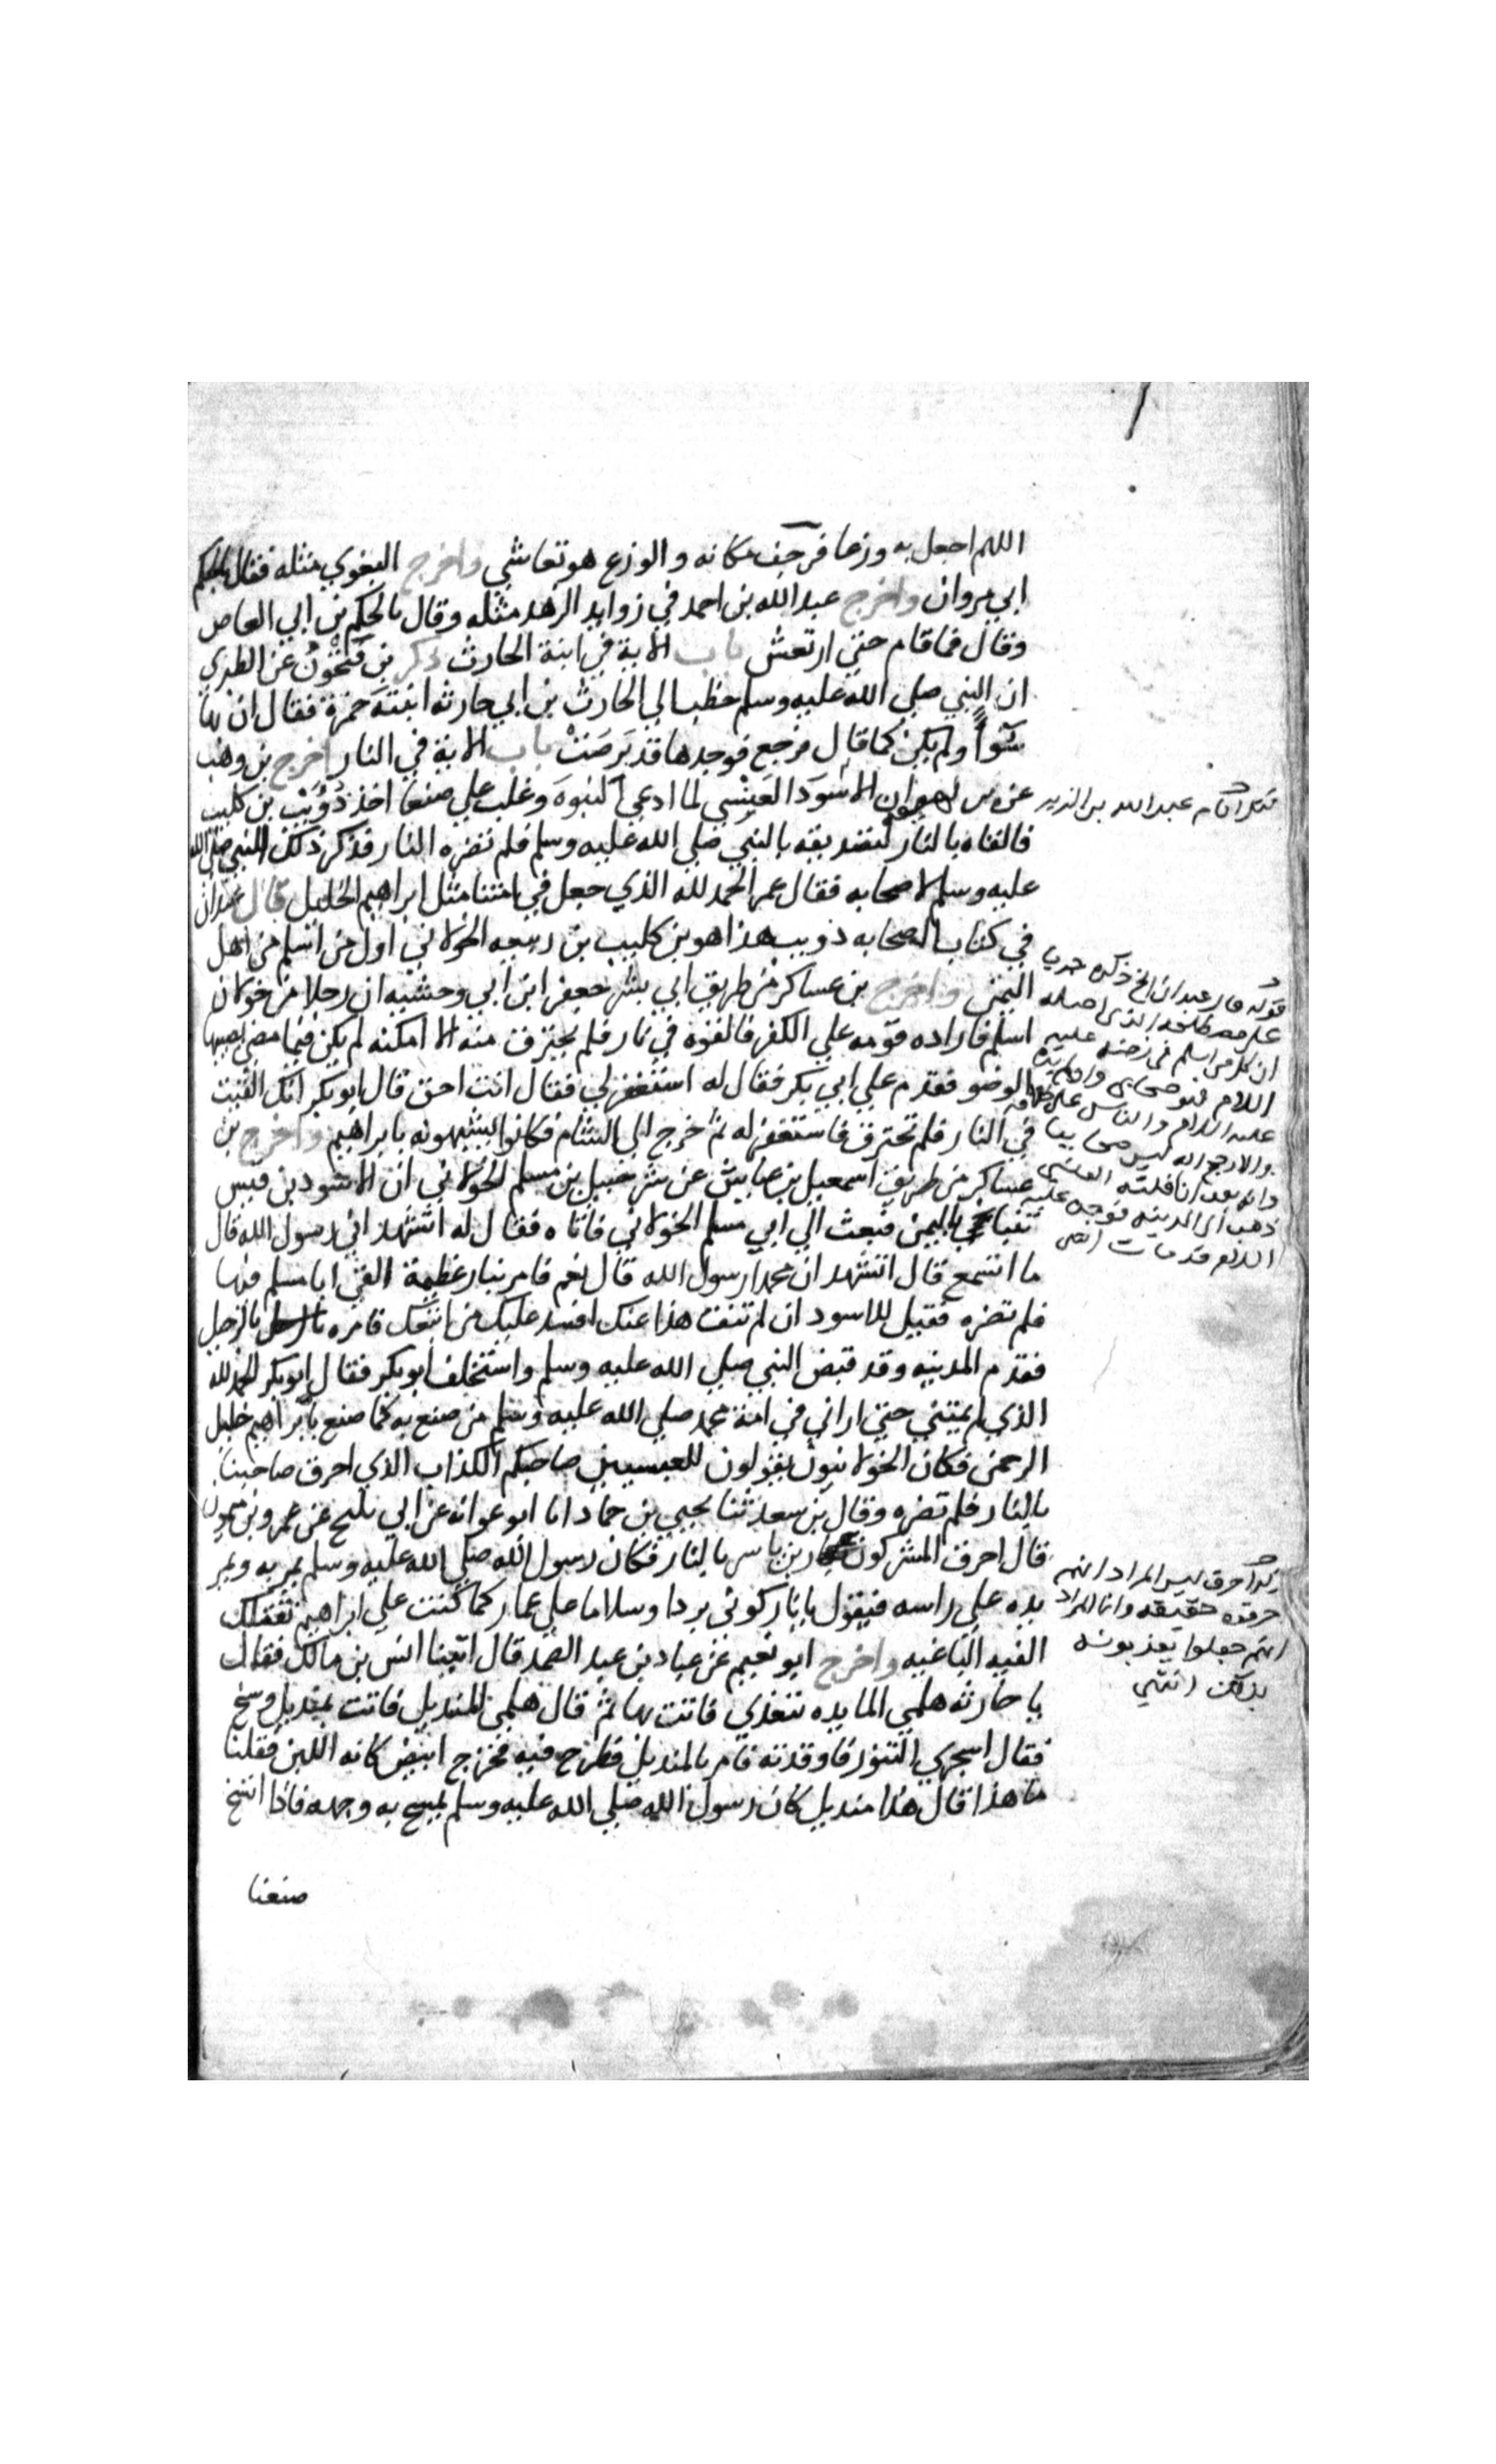 اللهم اجعل به وزعا فرجف مكانه والوزع هو تعاشي واخرج البغوي مثله فقال بالحكم
ابي مروان واخرج عبد الله بن احمد في زوايد الزهد مثله وقال بالحكم بن ابي العاص
وقال فما قام حتي ارتعش باب الاية في ابنة الحارث ذكر بن فتحون عن الطبري
ان النبي صلي الله عليه وسلم خطب الي الحارث بن ابي حارثه ابنته حمزة فقال ان بها
سوأ ولم يكن كما قال فرجع فوجدها قد برصت باب الاية في النار اخرج بن وهب
عن بن لهيعه ان الاسود العبسي لما ادعي النبوه وغلب علي صنعا اخذ ذويب بن كليب
فالقاه بالنار لتصديقه بالنبي صلي الله عليه وسلم فلم تضره النار فذكر ذلك النبي صلى الله
عليه وسلم لاصحابه فقال عمر الحمد لله الذي جعل في امتنا مثل ابراهيم الخليل قال عبدان
في كتاب الصحابه ذويب هذا هو بن كليب بن ربيعه الخولاني اول من اسلم من اهل
اليمن واخرج بن عساكر من طريق ابي بشر جعفر ابن ابي وحشيه ان رجلا من خولان
اسلم فاراده قومه علي الكفر فالقوه في نار فلم يحترق منه الا امكنه لم يكن فيما مضي يصيبها
الوضو فقدم علي ابي بكر فقال له استغفر لي فقال انت احق قال ابو بكر انك القيت
في النار فلم تحترق فاستغفر له ثم خرج الي الشام فكانوا يشبهونه بابراهيم واخرج بن
عساكر من طريق اسمعيل بن عايش عن شرحبيل بن مسلم الخولاني ان الاسود بن قيس
تنبا باليمن فبعث الي ابي مسلم الخولاني فاتاه فقال له اتشهد اني رسول الله قال
ما اسمع قال اتشهد ان محمدا رسول الله قال نعم فامر بنار عظيمة القي ابا مسلم فيها
فلم تضره فقيل للاسود ان لم تنف هذا عنك افسد عليك من اتبعك فامره بالرحيل
فقدم المدينه وقد قبض النبي صلي الله عليه وسلم واستخلف ابو بكر فقال ابو بكر الحمد لله
الذي لم يمتني حتي اراني في امة محمد صلي الله عليه وسلم من صنع به كما صنع بابراهيم خليل
الرحمن فكان الخولانيون يقولون للعبسيين صاحبكم الكذاب الذي احرق صاحبنا
بالنار فلم تضره وقال بن سعد ثنا يحيي بن حماد انا ابو عوانه عن ابي بلج عن عمرو بن ميمون
قال احرق المشركون عمار بن ياسر بالنار فكان رسول الله صلي الله عليه وسلم يمر به ويمر
يده علي راسه فيقول يا نار كوني بردا وسلاما علي عمار كما كنت علي ابراهيم تقتلك
الفيه الباغيه واخرج ابو نعيم عن عباد بن عبد الصمد قال اتينا انس بن مالك فقال
يا حارثه هلمي المايده نتغدي فاتت بها ثم قال هلمي المنديل فاتت بمنديل وسخ
فقال اسجري التنور فاوقدته فامر بالمنديل فطرح فيه فخرج ابيض كانه اللبن فقلنا
ما هذا قال هذا منديل كان رسول الله صلي الله عليه وسلم يمسح به وجهه فاذا اتسخ
صنعنا
عبد الله بن الزبير
قوله قال عبدان الخ ذكره
ان كل من اسلم في زمنه عليه
السلام فهو صحابي
ذهب الي المدينه فوجده عليه
السلام قد مات انتهى
احرق ليس المراد انهم
حرقوه حقيقه وانما المراد
انهم جعلوا يعذبونه
بذلك انتهي